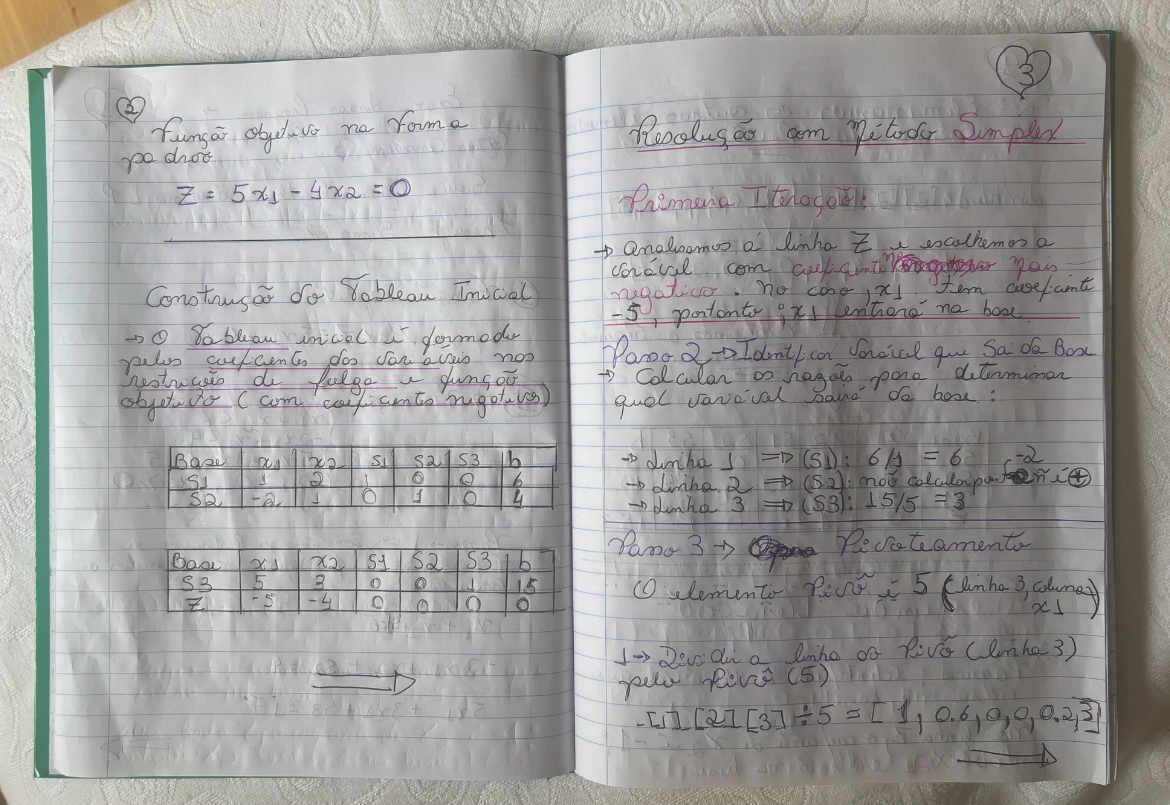 2
Função objetivo na Forma
padroo
Z = 5x1 - 4x2 = 0
Construção do Tableau Inicial
→ O Tableau inicial é formado
pelos coeficientes das variáveis nas
restrições de folga e função
objetivo (com coeficientes negativos)
Base x1 x2 S1 S2 S3 b
S1 1 2 1 0 0 6
S2 -2 1 0 1 0 4
Base x1 x2 S1 S2 S3 b
S3 5 3 0 0 1 15
Z -5 -4 0 0 0 0
3
Resolução com Método Simplex
Primeira Iteração:
→ Analisamos a linha Z e escolhemos a
variável com coeficiente mais
negativo. No caso, x1 tem coeficiente
-5, portanto, x1 entrará na base.
Passo 2 → Identificar variável que Sai da Base
→ Calcular as razões para determinar
qual variável sairá da base:
→ Linha 1 => (S1): 6/1 = 6
→ Linha 2 => (S2): não calcular -2 ñ é +
→ Linha 3 => (S3): 15/5 = 3
Passo 3 → Pivoteamento
O elemento Pivô é 5 (linha 3, coluna x1)
1 → Dividir a linha do Pivô (linha 3)
pelo Pivô (5)
- [1] [2] [3] ÷ 5 = [1, 0.6, 0, 0, 0.2, 3]